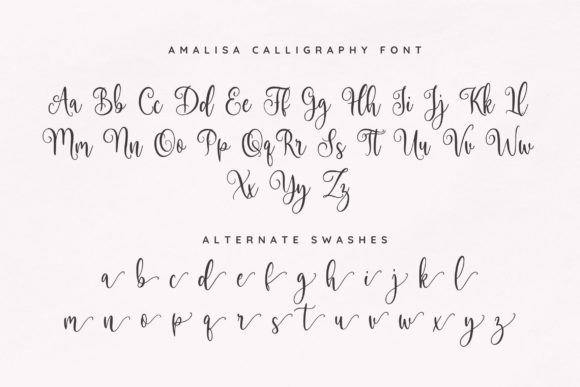 AMALISA CALLIGRAPHY FONT
Aa Bb Cc Dd Ee Ff Gg Hh Ii Jj Kk Ll
Mm Nn Oo Pp Qq Rr Ss Tt Uu Vv Ww
Xx Yy Zz
ALTERNATE SWASHES
a b c d e f g h i j k l
m n o p q r s t u v w x y z